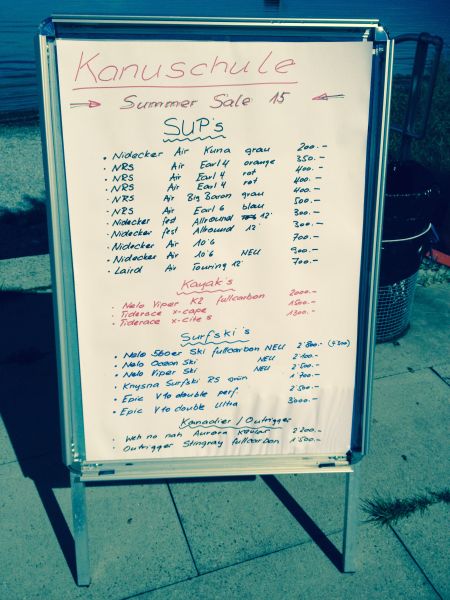 Kanuschule
Summer Sale 15
SUP's
• Nidecker Air Kuna grau 200.-
• NRS Air Earl 4 orange 350.-
• NRS Air Earl 4 rot 400.-
• NRS Air Earl 4 rot 400.-
• NRS Air Big Baron grau 400.-
• NRS Air Earl 6 blau 500.-
• Nidecker fest Allround 12' 300.-
• Nidecker fest Allround 12' 300.-
• Nidecker Air 10'6 700.-
• Nidecker Air 10'6 NEU 900.-
• Laird Air Touring 12' 700.-
Kayak's
• Nelo Viper K2 fullcarbon 2000.-
• Tiderace x-cape 1500.-
• Tiderace x-cite s 1300.-
Surfski's
• Nelo 560er Ski fullcarbon NEU 2'800.-
• Nelo Ocean Ski NEU 2'100.-
• Nelo Viper Ski NEU 2'500.-
• Knysna Surfski RS grün 1'700.-
• Epic V10 double perf. 2'500.-
• Epic V10 double Ultra 3'000.-
Kanadier / Outrigger
• We no nah Aurora Kevlar 2'200.-
• Outrigger Stingray fullcarbon 1'500.-